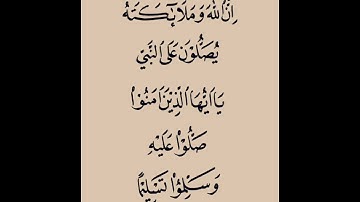 اِنَّ اللهَ وَ مَلَائِكَتَهُ
يُصَلُّوْنَ عَلَى النَّبِيِّ
يَا اَيُّهَا الَّذِيْنَ اٰمَنُوْا
صَلُّوْا عَلَيْهِ
وَ سَلِّمُوْا تَسْلِيْمًا